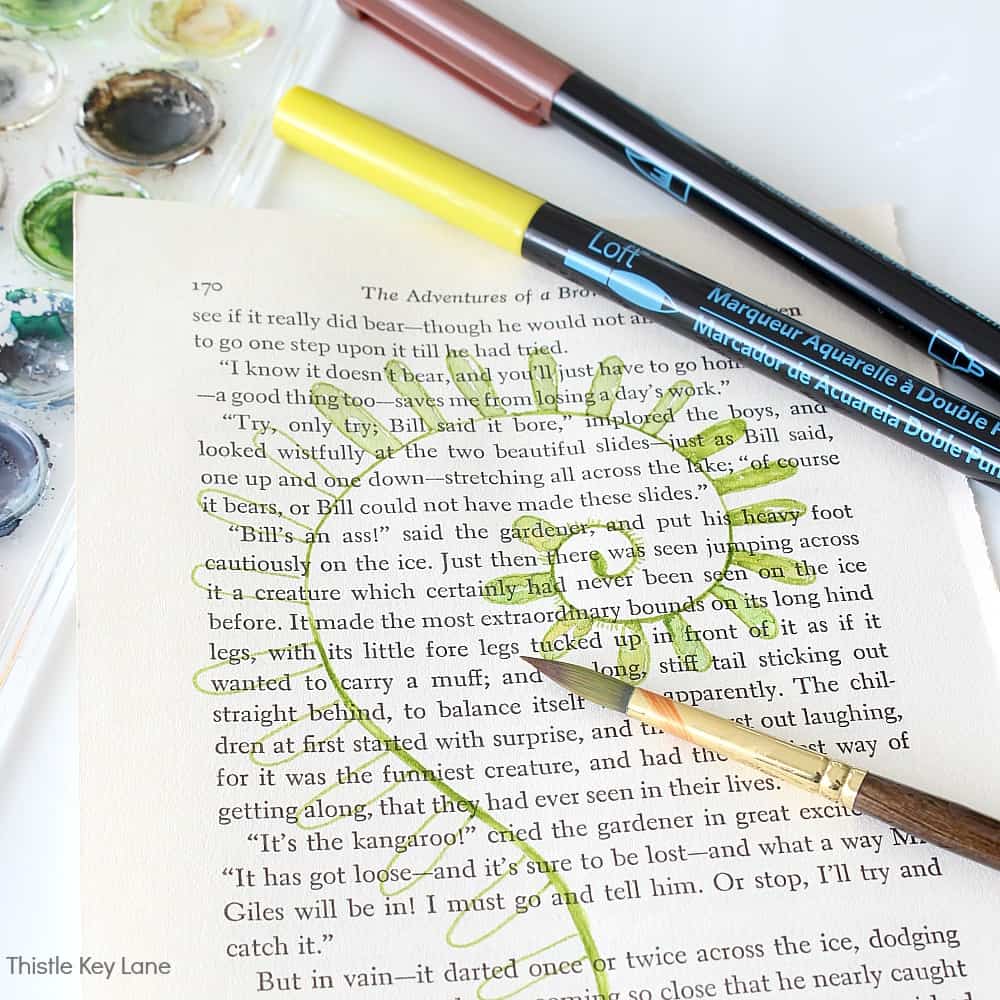 Loft
Marqueur Aquarelle à Double
Marcador de Acuarela Doble
170 The Adventures of a
see if it really did bear—though he would not
to go one step upon it till he had tried.
“I know it doesn’t bear, and you’ll just have to go
—a good thing too—saves me from losing a day’s work.”
“Try, only try; Bill said it bore,” implored the boys, and
looked wistfully at the two beautiful slides—just as Bill said,
one up and one down—stretching all across the lake; “of course
it bears, or Bill could not have made these slides.”
“Bill’s an ass!” said the gardener, and put his heavy foot
cautiously on the ice. Just then there was seen jumping across
it a creature which certainly had never been seen on the ice
before. It made the most extraordinary bounds on its long hind
legs, with its little fore legs tucked up in front of it as if it
wanted to carry a muff; and long, stiff tail sticking out
straight behind, to balance itself apparently. The chil-
dren at first started with surprise, and out laughing,
for it was the funniest creature, and had the way of
getting along, that they had ever seen in their lives.
“It’s the kangaroo!” cried the gardener in great
“It has got loose—and it’s sure to be lost—and what a way
Giles will be in! I must go and tell him. Or stop, I’ll try and
catch it.”
But in vain—it darted once or twice across the ice, dodging
so close that he nearly caught
Thistle Key Lane